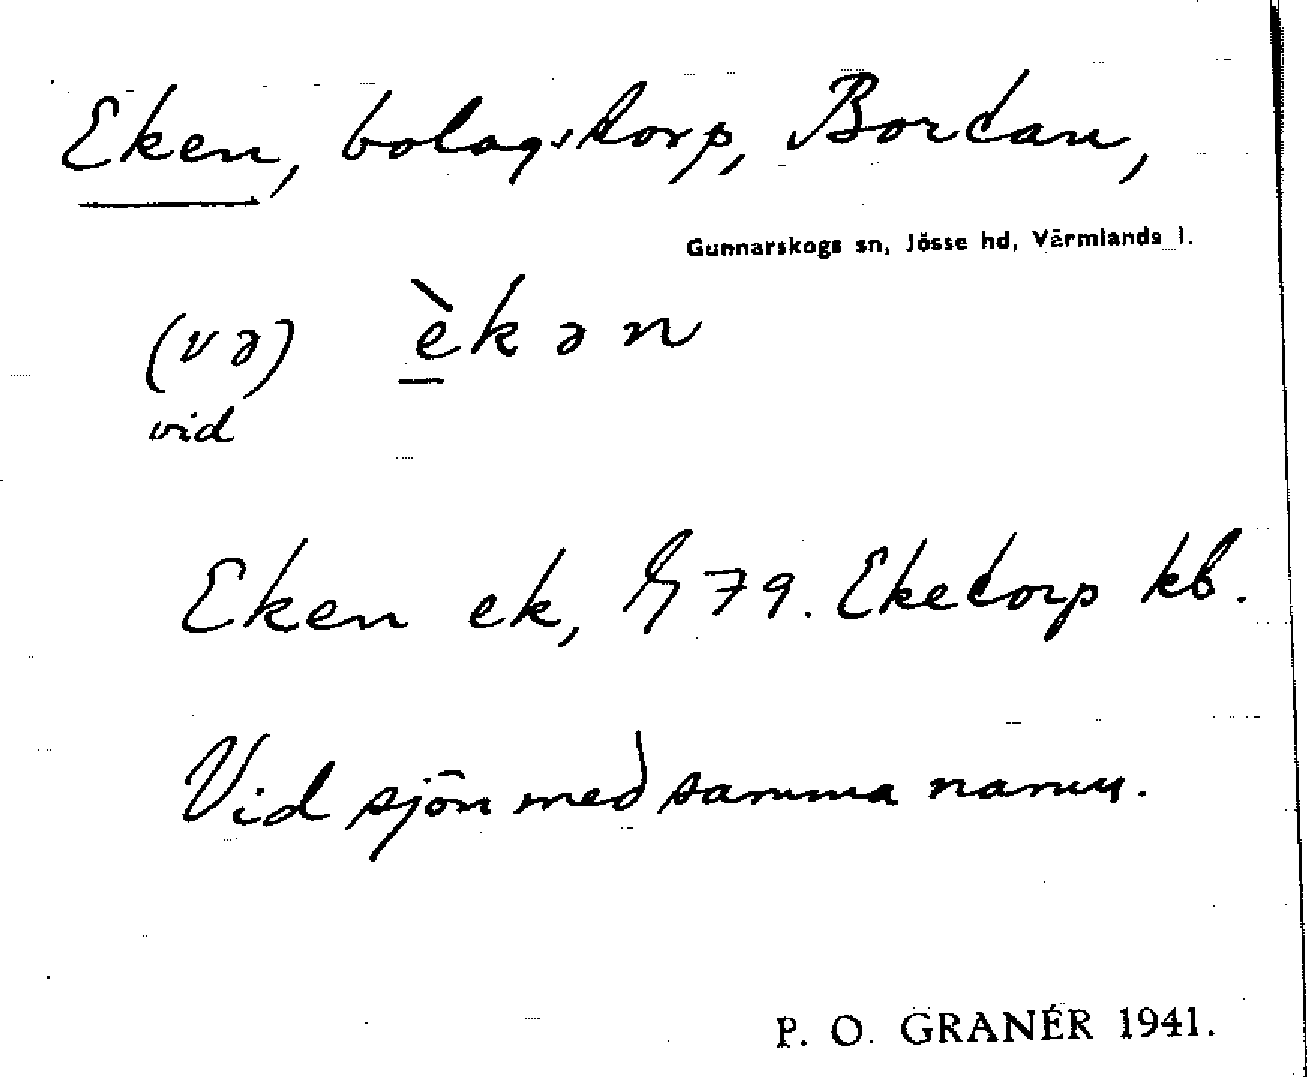 Eken, bolagstorp, Bortan,
Gunnarskogs sn, Jösse hd, Värmlands l.
(və) èkən
vid
Eken ek, G 79. Eketorp kb.
Vid sjön med samma namn.
P. O. GRANÉR 1941.